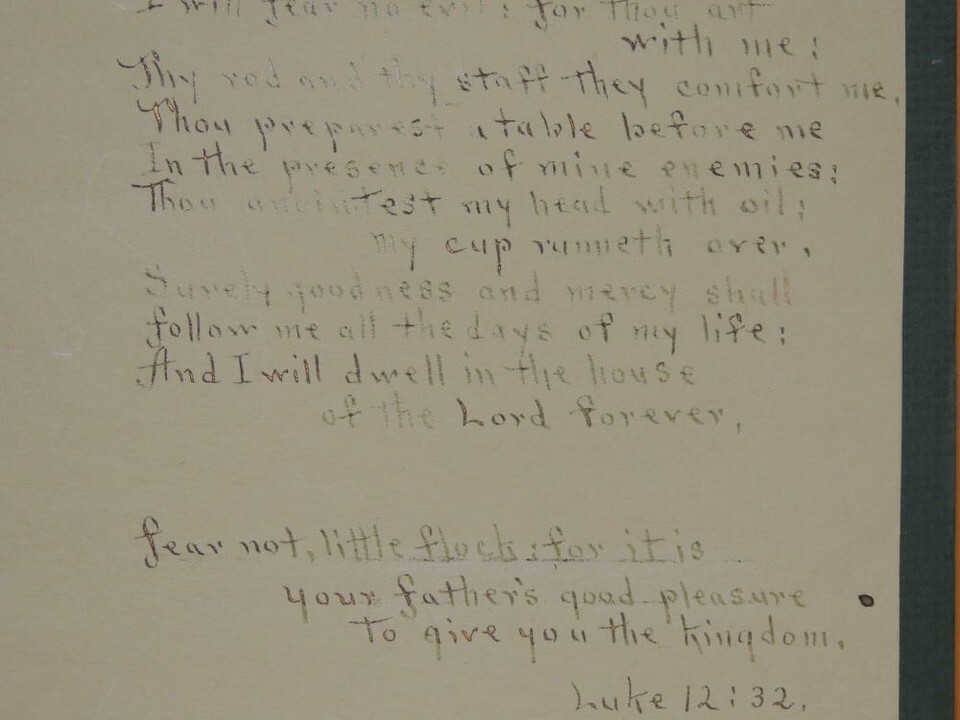 I will fear no evil: for Thou art
with me:
Thy rod and thy staff they comfort me.
Thou preparest a table before me
In the presence of mine enemies:
Thou anointest my head with oil:
my cup runneth over.
Surely goodness and mercy shall
follow me all the days of my life:
And I will dwell in the house
of the Lord forever.
fear not, little flock: for it is
your father's good pleasure
To give you the kingdom.
Luke 12:32.